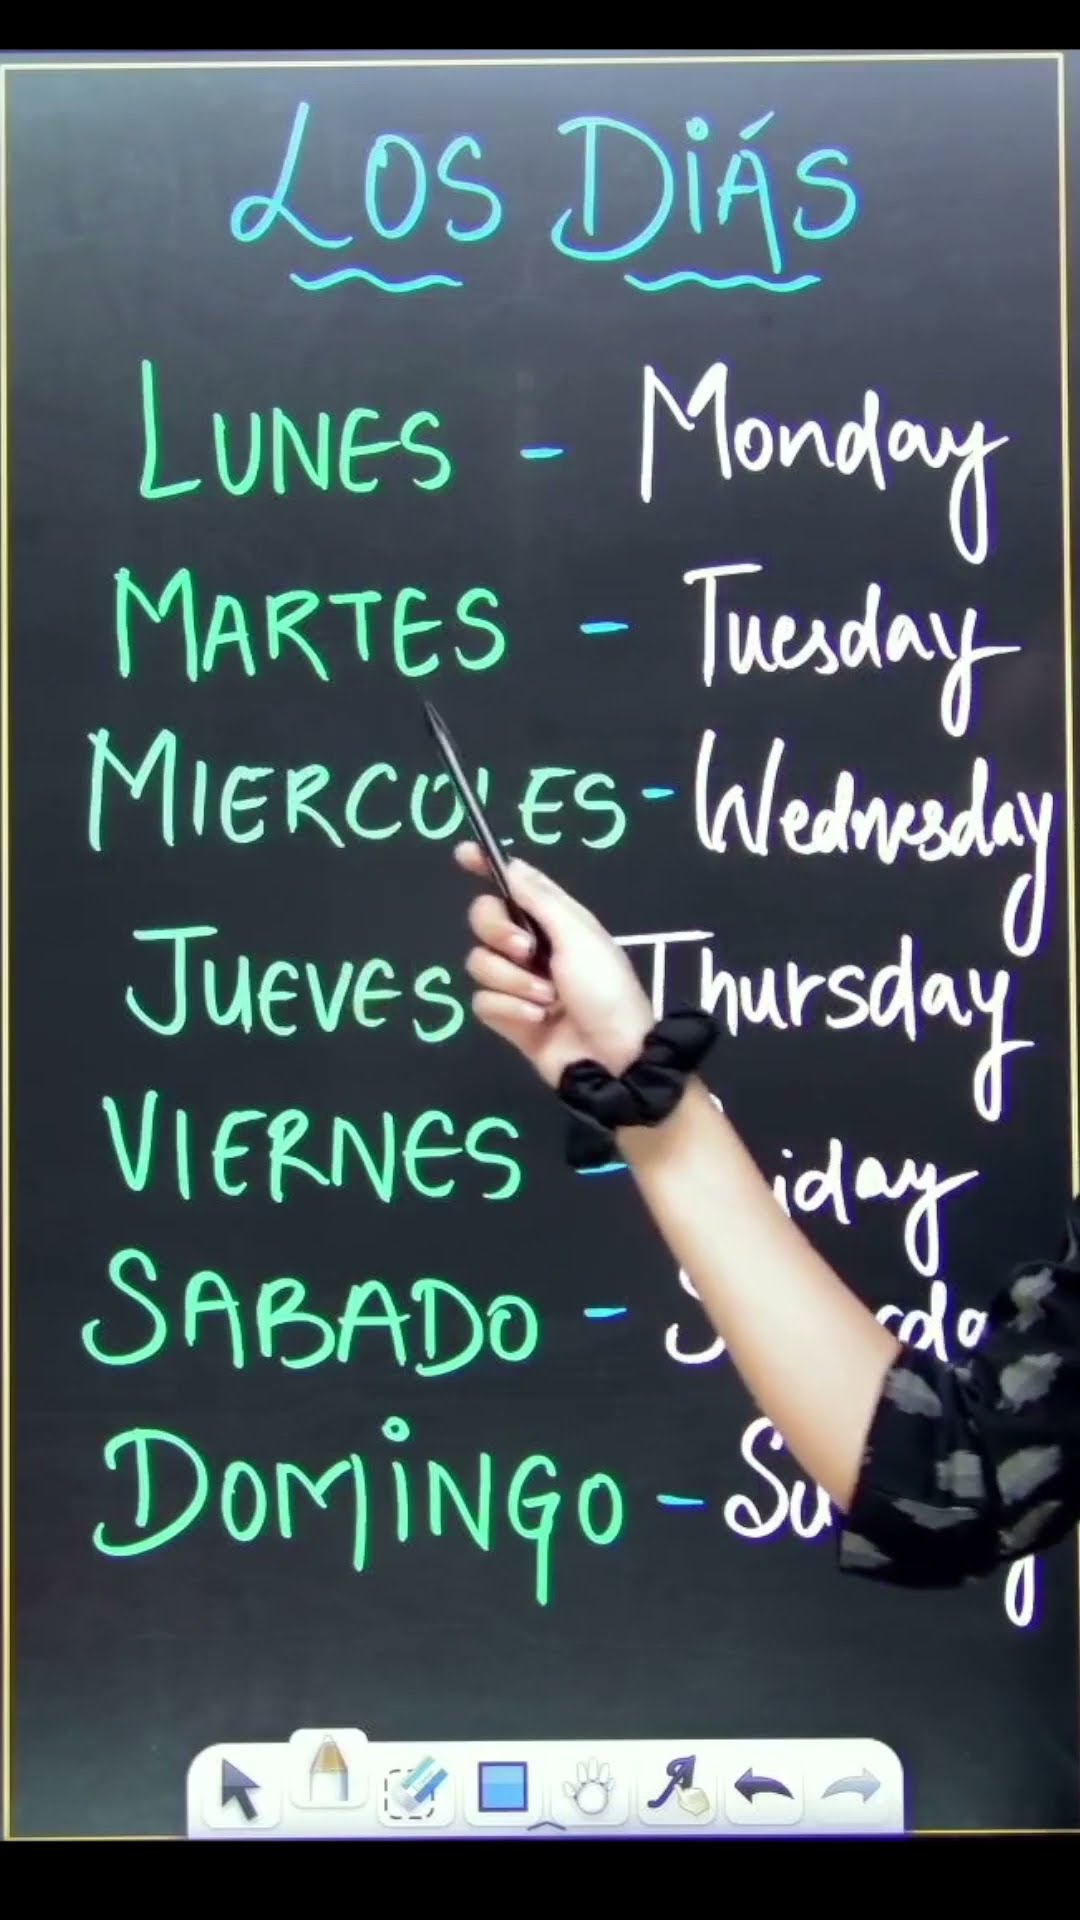 LOS DiÁS
LUNES - Monday
MARTES - Tuesday
MIERCOLES - Wednesday
JUEVES Thursday
VIERNES -
SABADO -
DOMiNGO -